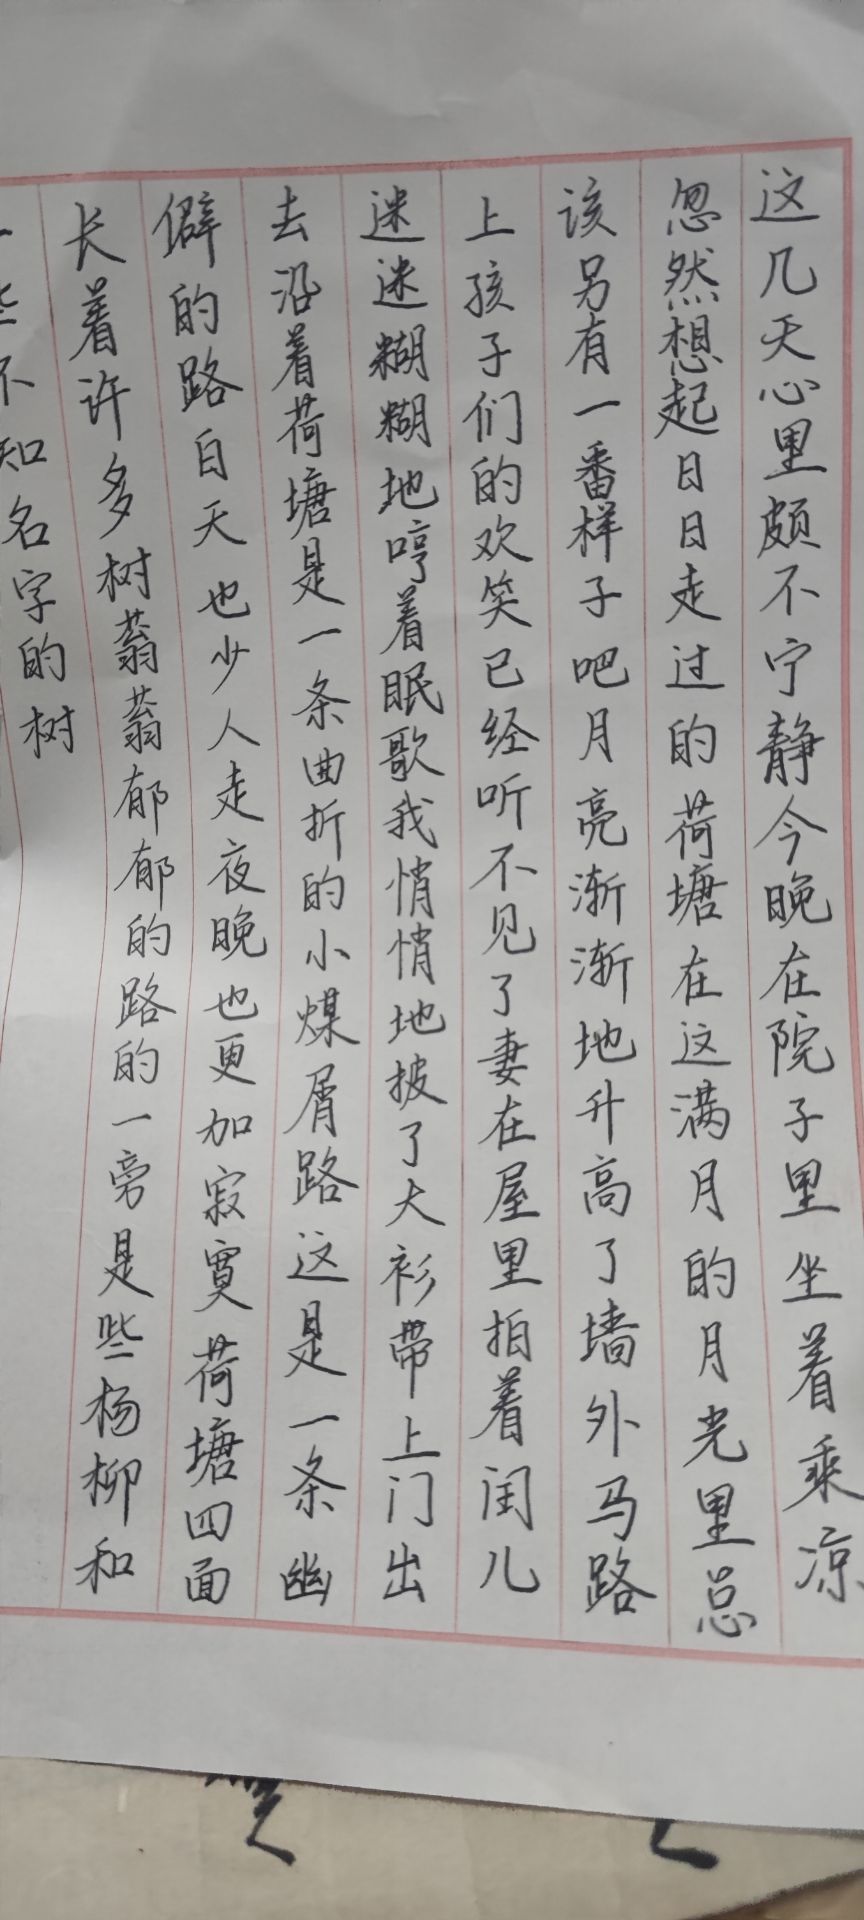 这几天心里颇不宁静今晚在院子里坐着乘凉
忽然想起日日走过的荷塘在这满月的月光里总
该另有一番样子吧月亮渐渐地升高了墙外马路
上孩子们的欢笑已经听不见了妻在屋里拍着闰儿
迷迷糊糊地哼着眠歌我悄悄地披了大衫带上门出
去沿着荷塘是一条曲折的小煤屑路这是一条幽
僻的路白天也少人走夜晚也更加寂寞荷塘四面
长着许多树蓊蓊郁郁的路的一旁是些杨柳和
一些不知名字的树